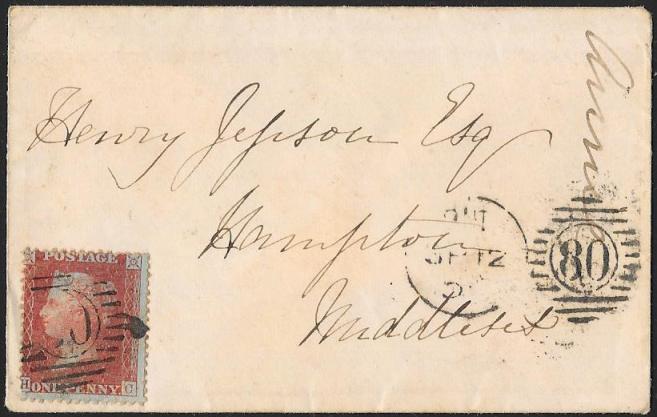 Henry Jepson Esq
Hampton
Middlesex
SP 12
80
POSTAGE
ONE PENNY